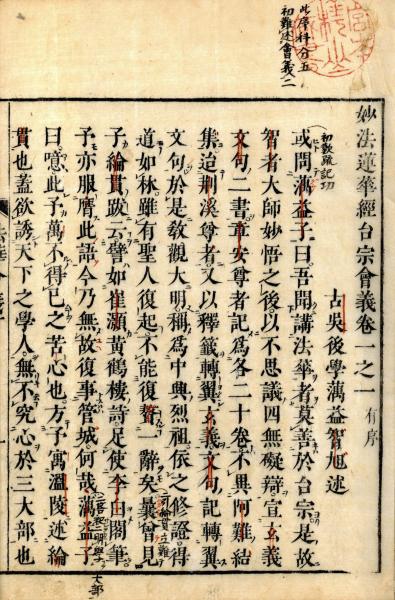 此序科分五
初難述會義二
妙法蓮華經台宗會義卷一之一 有序
古吳後學蕅益智旭述
初敘疏記功
或問蕅益子曰吾聞講法華者莫善於台宗是故
智者大師妙悟之後以不思議四無礙辯宣玄義
文句二書章安尊者記爲各二十卷不異阿難結
集迨荆溪尊者又以釋籤轉翼玄義文句記轉翼
文句於是教觀大明稱爲中興烈祖依之修證得
道如林雖有聖人復起不能復贅一辭矣曩曾見
子綸貫跋云譬如崔灝黃鶴樓詩足使李白閣筆
予亦服膺此語今乃無故復事管城何哉蕅益子
曰噫此予萬不得已之苦心也方予寓溫陵述綸
貫也蓋欲誘天下之學人無不究心於三大部也